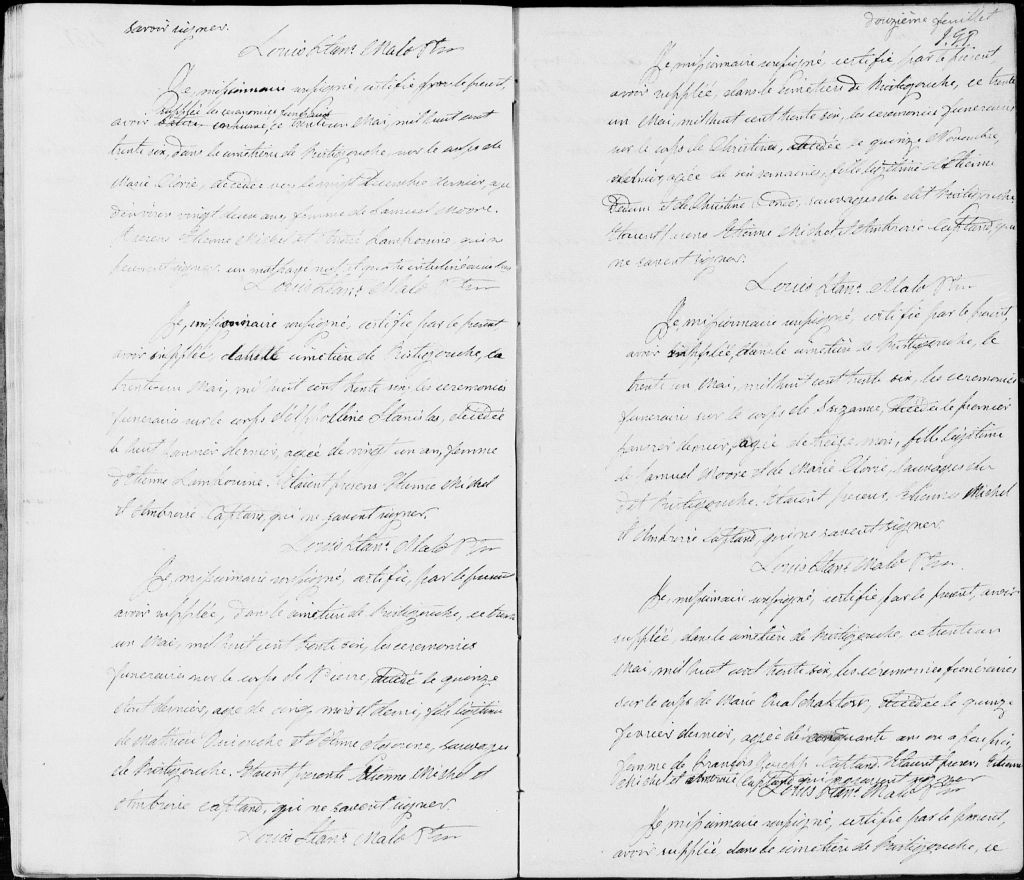 savoir signer.
Louis Stans. Malo Ptre
Je, missionnaire soussigné, certifie par le présent,
avoir suppléé les ceremonies funéraires
ce trente un Mai, mil huit cent
trente six, dans le cimetière de Ristigouche, sur le corps de
Marie Clorie, décédée vers le vingt decembre dernier, agée
d'environ vingt deux ans, femme de Samuel Moore.
Etienne Michel et Lambourne qui n
signer. un mot rayé nul et quatre interlinéaires bons
Louis Stans. Malo Ptre
Je, missionnaire soussigné, certifie par le présent
avoir suppléé, dans le cimétière de Ristigouche, ce
trente un Mai, mil huit cent trente six les ceremonies
funeraires sur le corps d'Appolline Stanislas, décédée
le huit janvier dernier, agée de vingt un ans, femme
d'Etienne Lambourne. Etaient présens Etienne Michel
et Ambroise Captand, qui ne savent signer.
Louis Stans. Malo Ptre
Je, missionnaire soussigné, certifie, par le présent
avoir suppléé, dans le cimétière de Ristigouche, ce trente
un Mai, mil huit cent trente six, les ceremonies
funeraires sur le corps de Pierre, décédé le quinze
Aout dernier, agé de cinq mois et demi, fils légitime
de Matthieu et d' sauvages
de Ristigouche. Etaient présents Etienne Michel et
Ambroise Captand, qui ne savent signer
Louis Stans. Malo Ptre
douzième feuillet
Je, missionnaire soussigné, certifie par le présent
avoir suppléé, dans le cimétière de Ristigouche, ce trente
un Mai, mil huit cent trente six, les ceremonies funeraires
sur le corps de Christine, décédée le quinze Novembre,
dernier, agée de six semaines, fille légitime d'Etienne
et de Christine Condo, sauvages du dit Ristigouche.
Etaient présens Etienne Michel et Ambroise Captand, qui
ne savent signer.
Louis Stans. Malo Ptre
Je, missionnaire soussigné, certifie par le présent
avoir suppléé, dans le cimétière de Ristigouche, le
trente un Mai, mil huit cent trente six, les ceremonies
funeraires sur le corps de Suzanne, décédée le premier
janvier dernier, agée de treize mois, fille légitime
de Samuel Moore et de Marie Clorie, sauvages du
dit Ristigouche. Etaient présens, Etienne Michel
et Ambroise Captand, qui ne savent signer
Louis Stans. Malo Ptre
Je, missionnaire soussigné, certifie par le présent, avoir
suppléé, dans le cimétière de Ristigouche, ce trente un
Mai, mil huit cent trente six, les ceremonies funéraires
sur le corps de Marie décédée le quinze
février dernier, agée de cinquante ans ou à peu près,
femme de François Joseph Captand. Etaient présens Etienne
Michel et Ambroise Captand, qui ne savent signer
Louis Stans. Malo Ptre
Je, missionnaire soussigné, certifie par le présent,
avoir suppléé, dans le cimétière de Ristigouche, ce